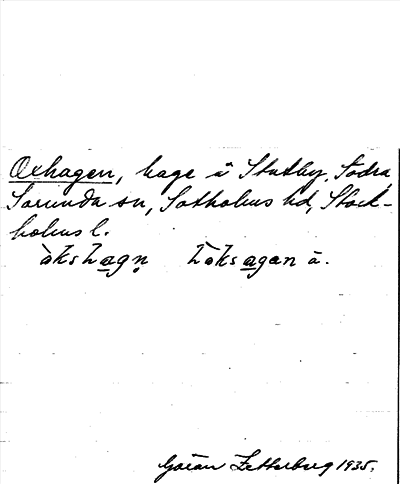 Oxhagen, hage i Stutby, Södra
Sorunda sn, Sotholms hd, Stock-
holms l.
Göran Zetterberg 1935.